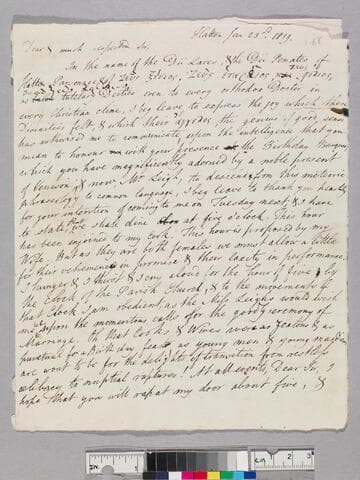 Hatton Jan 23d. 1819.
Dear & much respected Sir,
In the name of the Dii Lares, & the Dii Penates of
Hatton Parsonage, of Ζευς
tutelar Deities even to every orthodox Doctor in
every Christian clime, I beg leave to express the joy which these
Divinities felt & which their the genius of good sense
has authorised me to communicate upon the intelligence that you
mean to honour with your presence the Birthday Banquet,
which you have magnificently adorned by a noble present
of Venison & now, Mr Leigh, to descend from this meteoric
phraseology to common language, I beg leave to thank you heartily
for your intention of coming to me on Tuesday next, & I have
to state that we shall dine at five o'clock. This hour
has been enjoined to my Cook. This hour is proposed by my
Wife. But as they are both females we must allow a little
for their vehemence in promise & their laxity in performance.
I hunger & I thirst & cry aloud for the hour of five by
the clock of the Parish Church, & to the movements of
that Clock I am obedient as the Miss Leighs would wish
me upon the momentous calls for the goodly ceremony of
Marriage. Oh that Cooks & Wives were as zealous & as
punctual for a Birthday feast as young men & young maidens
are wont to be for the delights of transition from restless
celibacy to nuptial raptures! At all events, Dear Sir, I
hope that you will rap at my door about five, &
IN. 1 2 CM 1 2 3